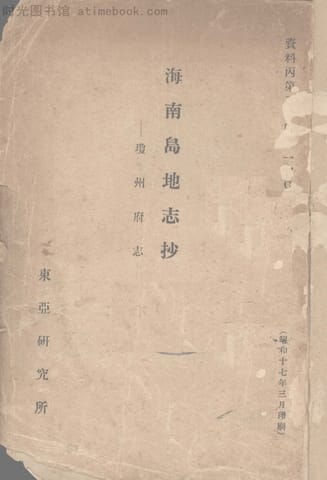 时光图书馆 atimebook.com
資料丙第
海南島地志抄
—瓊州府志
東亞研究所
(昭和十七年三月印刷)